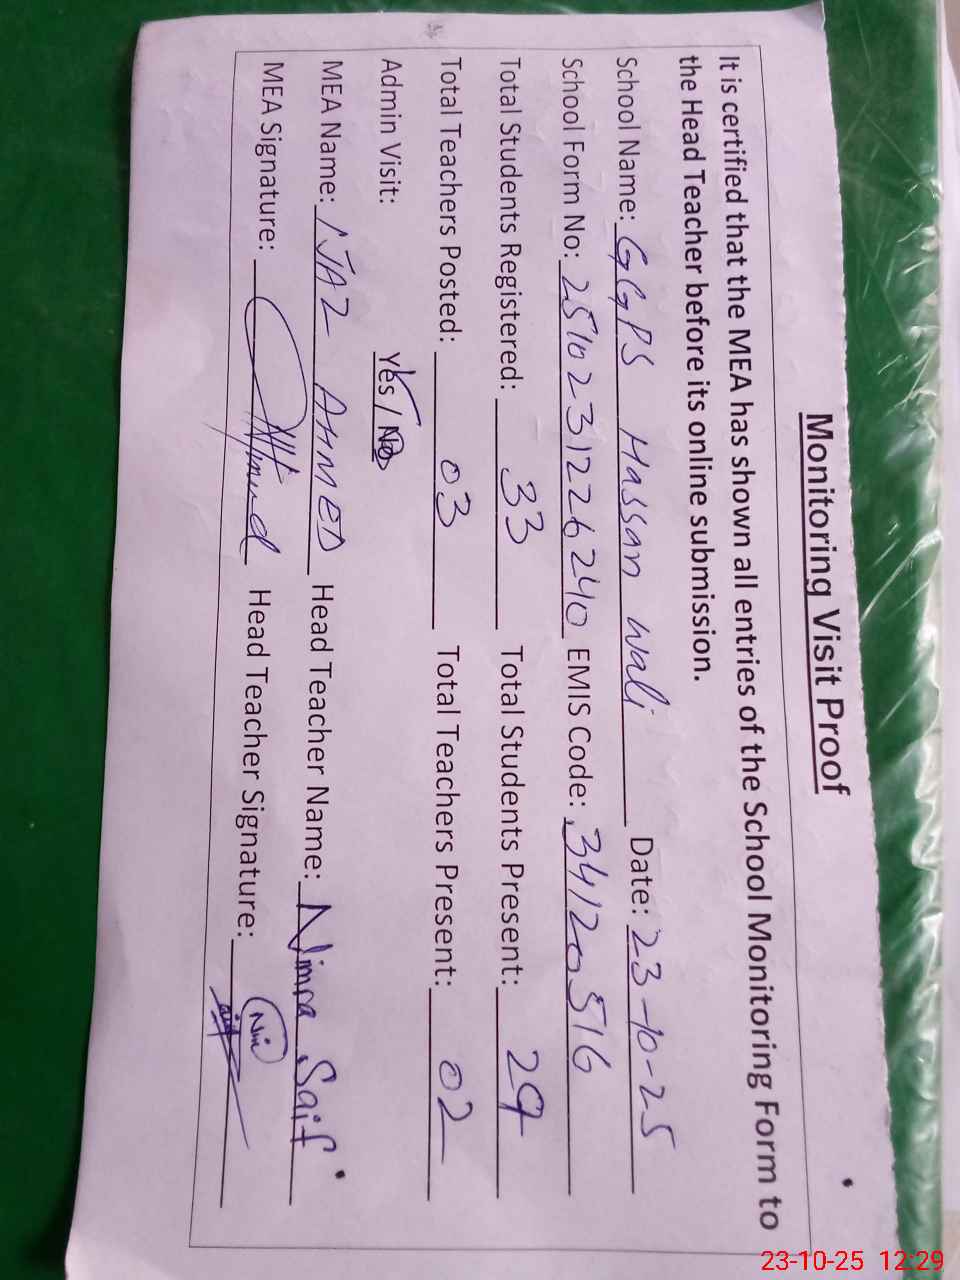 Monitoring Visit Proof
It is certified that the MEA has shown all entries of the School Monitoring Form to
the Head Teacher before its online submission.
School Name: GGPS Hassan wali Date: 23-10-25
School Form No: 2510231226240 EMIS Code: 34120516
Total Students Registered: 33 Total Students Present: 29
Total Teachers Posted: 03 Total Teachers Present: 02
Admin Visit: Yes / No
MEA Name: IJAZ AHMED Head Teacher Name: Nimra Saif
MEA Signature: Head Teacher Signature:
23-10-25 12:29